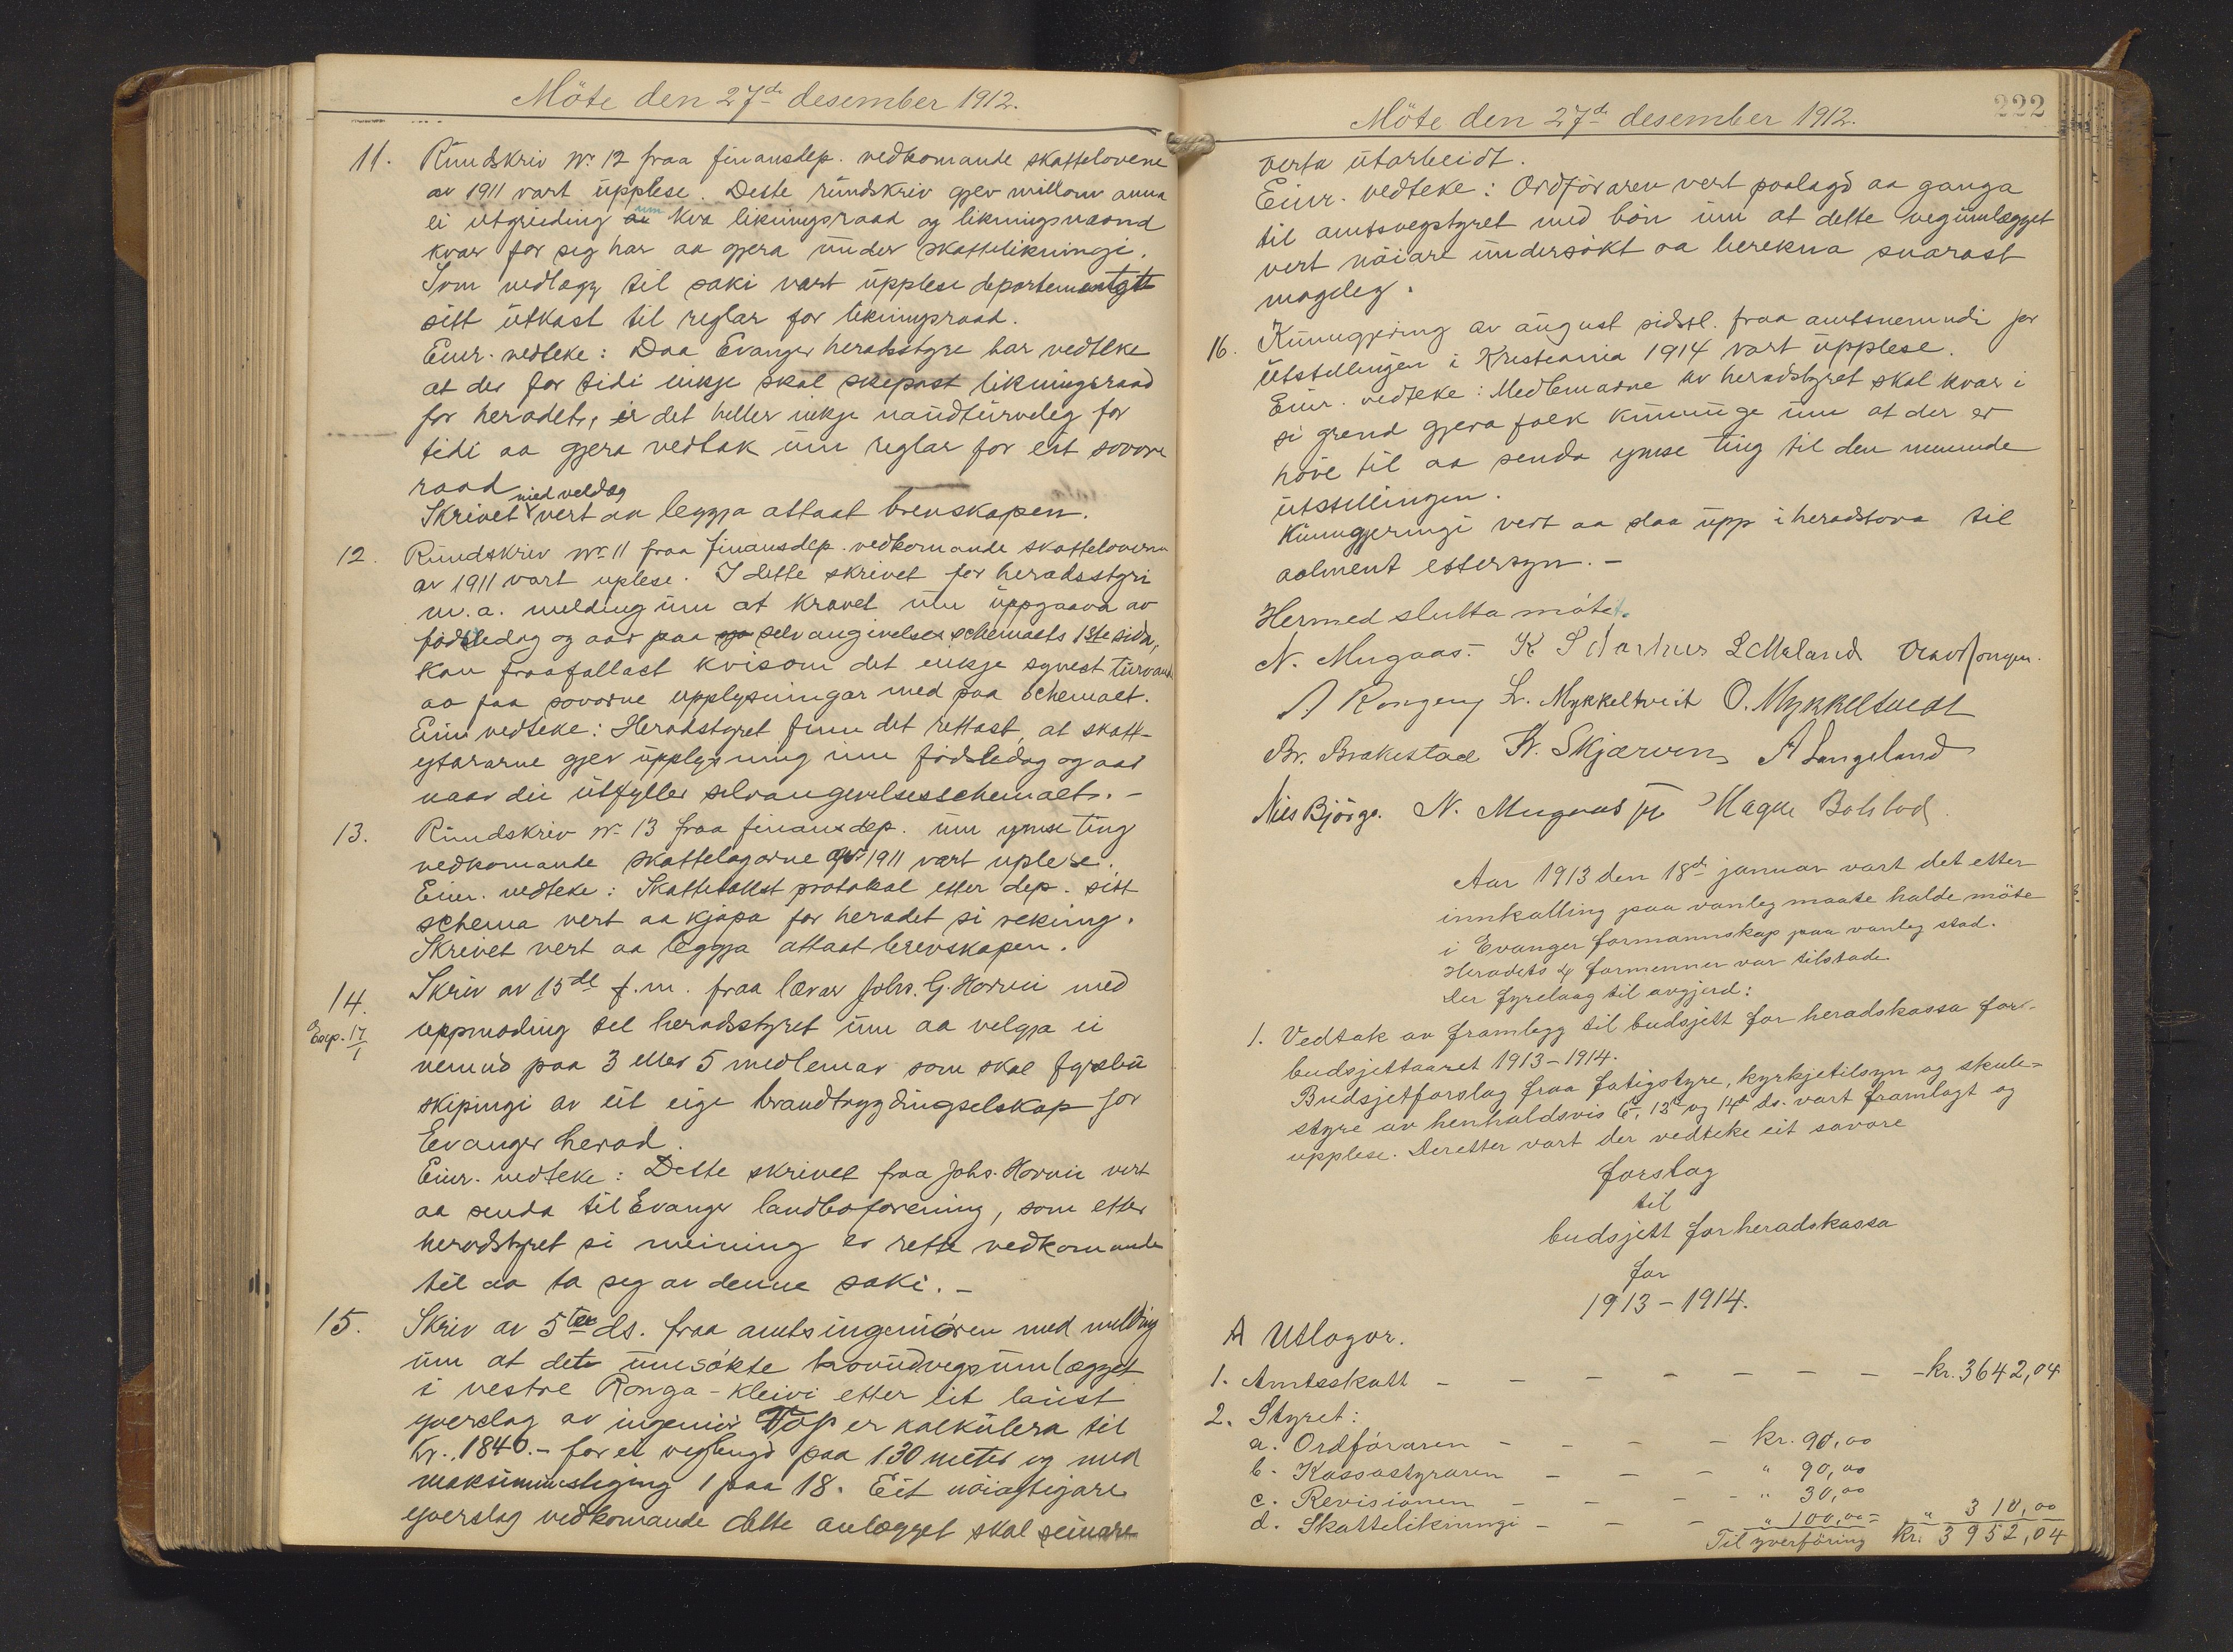 Möte den 27de desember 1912.
11. Rundskriv Nr 12 fraa finansdep. vedkomande skattelovene
av 1911 vart upplese. Deste rundskriv gjev millom anna
ei utgreiding um kva likningsraad og likningsnæmnd
kvar for sig har aa gjera under skattelikningi.
Som vedlegg til saki vart upplese departementet
sitt utkast til reglar for likningsraad.
Einr. vedteke: Daa Evanger heradsstyre har vedteke
at der for tidi inkje skal skipast likningsraad
for heradet, er det heller inkje naudturveleg for
tidi aa gjera vedtak um reglar for eit sovore
raad.
Skrivet med vedlæg vert aa leggja attaat brevskapen.
12. Rundskriv nr 11 fraa finansdep. vedkomande skattelovene
av 1911 vart uplese. I dette skrivet fer heradsstyri
m.a. melding um at kravet um uppgaava av
födsledag og aar paa selvangivelses schemaets 1ste side,
kan fraafallast kvisom det inkje synest turvande
aa faa sovorne upplysningar med paa schemaet.
Einr vedteke: Heradstyret finn det rettast, at skatt-
ytararne gjev upplysning um födsledag og aar
naar dei utfyller selvangivelsesschemaet. -
13. Rundskriv Nr 13 fraa finansdep. um ymse ting
vedkomande skattelagarne av 1911 vart uplese.
Einr. vedteke: Skattetakst protokol etter dep. sitt
schema vert aa kjöpa for heradet si rekning.
Skrivet vert aa leggja attaat brevskapen.
14. Skriv av 15de f.m. fraa lærar Johs. G. Horvei med
Exp. 17/1 uppmoding til heradsstyret um aa velgja ei
nemnd paa 3 eller 5 medlemar som skal fyrebu
skipingi av eit eige brandtrygdingselskap for
Evanger herad.
Einr. vedteke: Dette skrivet fraa Johs. Horvei vert
aa senda til Evanger landboforening, som etter
heradstyret si meining er rette vedkomande
til aa ta seg av denne saki. -
15. Skriv av 5te ds. fraa amtsingeniören med melding
um at det umsökte hovudvegsumlægget
i vestre Ronga-Kleivi etter eit laust
yverslag av ingeniör er kalkulera til
Kr. 1840.- for ei veglengd paa 130 meter og med
maksimumstiging 1 paa 18. Eit nöiagtigare
yverslag vedkomande dette anlægget skal seinare
222
Möte den 27de desember 1912.
verta utarbeidt.
Einr. vedteke: Ordföraren vert paalagd aa ganga
til amtsvegstyret med bön um at dette vegumlægget
vert nöiare undersökt aa berekna snarast
mogeleg.
16. Kunngjering av august sidstl. fraa amtsnemndi for
utstellingen i Kristiania 1914 vart upplese.
Einr. vedteke: Medlemarne av heradstyret skal kvar i
si grend gjera folk kunnuge um at der er
höve til aa senda ymse ting til den nemnde
utstillingen.
Kunngjeringi vert aa slaa upp i heradstova til
aalment ettersyn. -
Hermed slutta mötet.
N. Mugaas. K Sdarhus L Mæland Olav Hongen.
A Rongen L. Mykkeltveit O. Mykkeltvedt
Br. Brakestad K. Skjærven A Langeland
Nils Björge. N. Mugaas jr Magne Bolstad.
Aar 1913 den 18de januar vart det etter
innkalling paa vanleg maate halde möte
i Evanger formannskap paa vanleg stad.
Heradets 4 formenner var tilstade.
Der fyrelaag til avgjerd:
1. Vedtak av framlegg til budsjett for heradskassa for
budsjettaaret 1913-1914.
Budsjetforslag fraa fatigstyre, kyrkjetilsyn og skule-
styre av henhaldsvis 6te, 13de og 14de ds. vart framlagt og
upplese. Deretter vart der vedteke eit savore
forslag
til
budsjett for heradskassa
for
1913-1914.
A Utlogor.
1. Amtsskatt - - - - - - - - kr. 3642,04
2. Styret:
a. Ordföraren - - - - kr. 90,00
b. Kassastyraren - - - " 90,00
c. Revisionen - - - - " 30,00
d. Skattelikningi - - - " 100,00 = " 310,00
Til yverföring kr. 3952,04